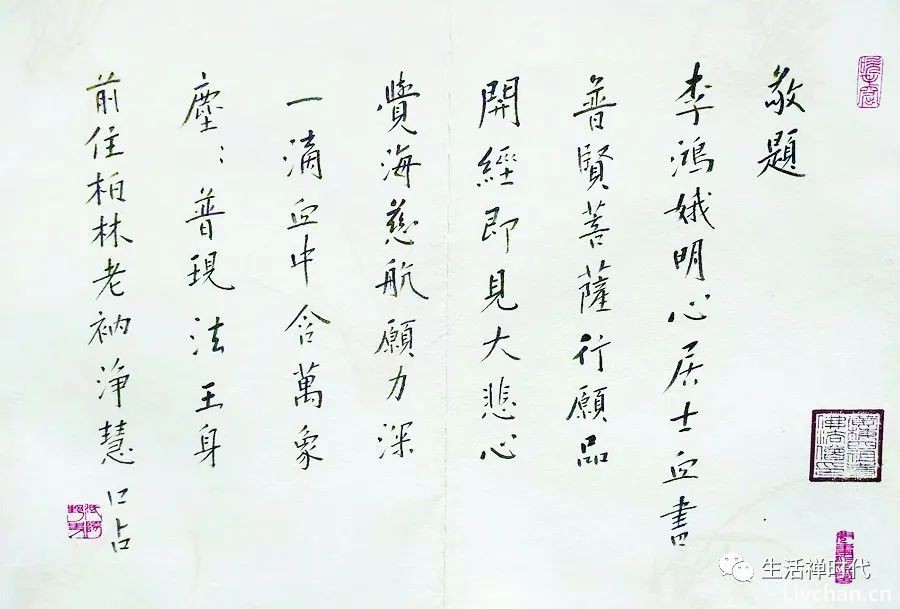 敬題
李鴻娥明心居士血書
普賢菩薩行願品
開經即見大悲心
覺海慈航願力深
一滴血中含萬象
塵：普現法王身
前住柏林老衲淨慧口占
生活禅时代
Livchan.cn